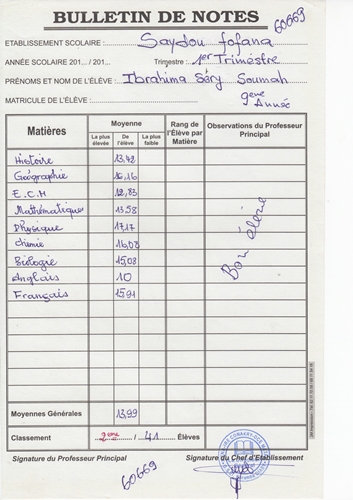 BULLETIN DE NOTES
60669
ETABLISSEMENT SCOLAIRE : Saydou fofana
ANNÉE SCOLAIRE 201... / 201... Trimestre : 1er Trimestre
PRÉNOMS ET NOM DE L'ÉLÈVE : Ibrahima Séry Soumah
MATRICULE DE L'ÉLÈVE : 9ème Année
Matières Moyenne Rang de l'Élève par Matière Observations du Professeur Principal
La plus élevée De l'élève La plus faible
Histoire 13,42
Géographie 16,16
E.C.M 12,83
Mathématique 13,58
Physique 17,17
chimie 16,08
Biologie 15,08
Anglais 10
Français 15,91
Bon élève
Moyennes Générales 13,99
Classement 2ème / 41 Élèves
Signature du Professeur Principal Signature du Chef d'Etablissement
60669